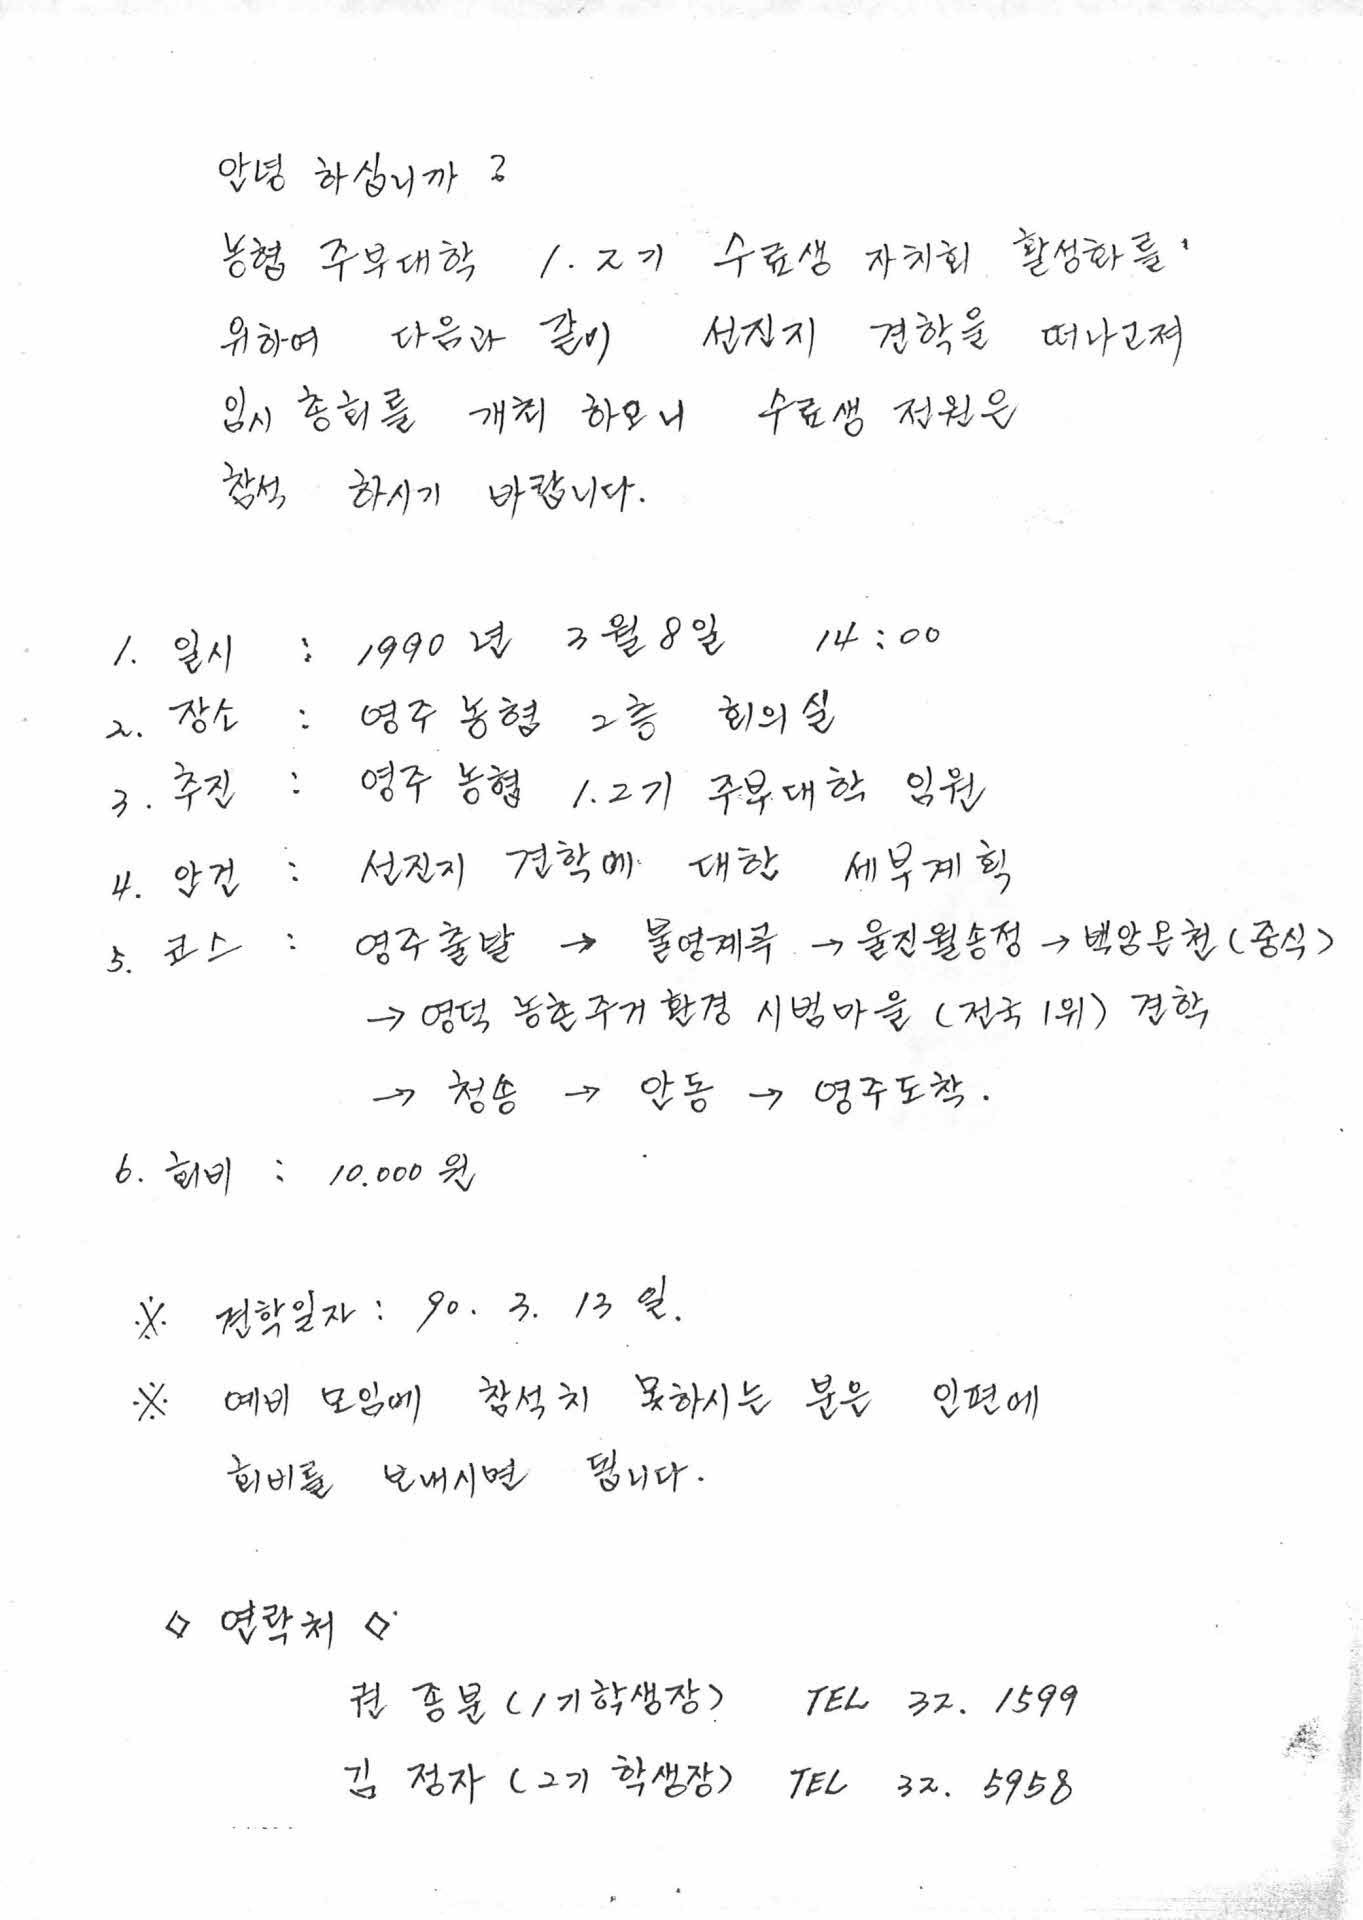 안녕 하십니까?
농협 주부대학 1.2기 수료생 자치회 활성화를
위하여 다음과 같이 선진지 견학을 떠나고져
임시 총회를 개최 하오니 수료생 전원은
참석 하시기 바랍니다.
1. 일시 : 1990년 3월 8일 14:00
2. 장소 : 영주 농협 2층 회의실
3. 추진 : 영주 농협 1.2기 주부대학 임원
4. 안건 : 선진지 견학에 대한 세부계획
5. 코스 : 영주출발 → 불영계곡 → 울진월송정 → 백암온천 (중식)
→ 영덕 농촌주거환경 시범마을 (전국 1위) 견학
→ 청송 → 안동 → 영주도착.
6. 회비 : 10.000원
※ 견학일자 : 90. 3. 13일.
※ 예비 모임에 참석치 못하시는 분은 인편에
회비를 보내시면 됩니다.
◇ 연락처 ◇
권 종분 (1기 학생장) TEL 32. 1599
김 정자 (2기 학생장) TEL 32. 5958